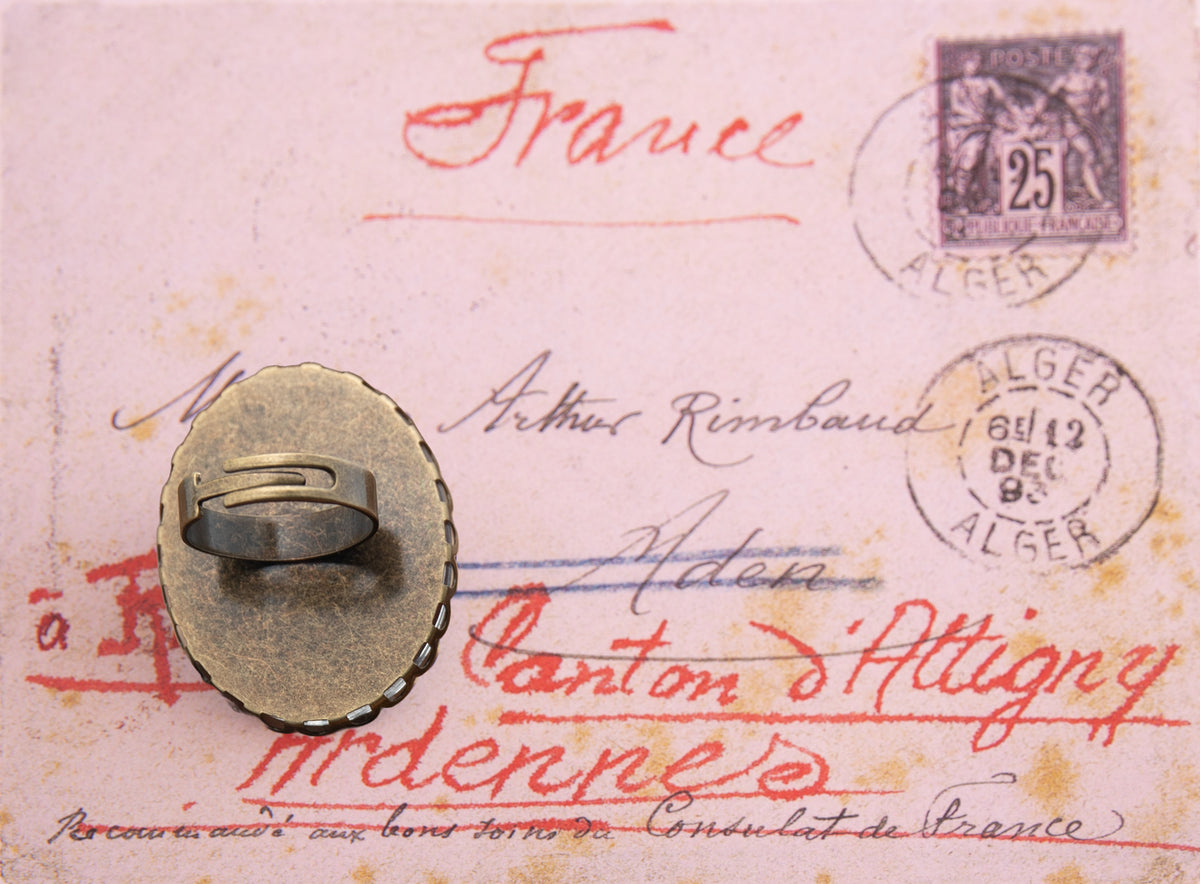 France
POSTES
25
REPUBLIQUE FRANÇAISE
ALGER
M Arthur Rimbaud
ALGER
12
DEC
ALGER
Aden
à
Canton d'Attigny
Ardennes
Recommandé aux bons soins du Consulat de France